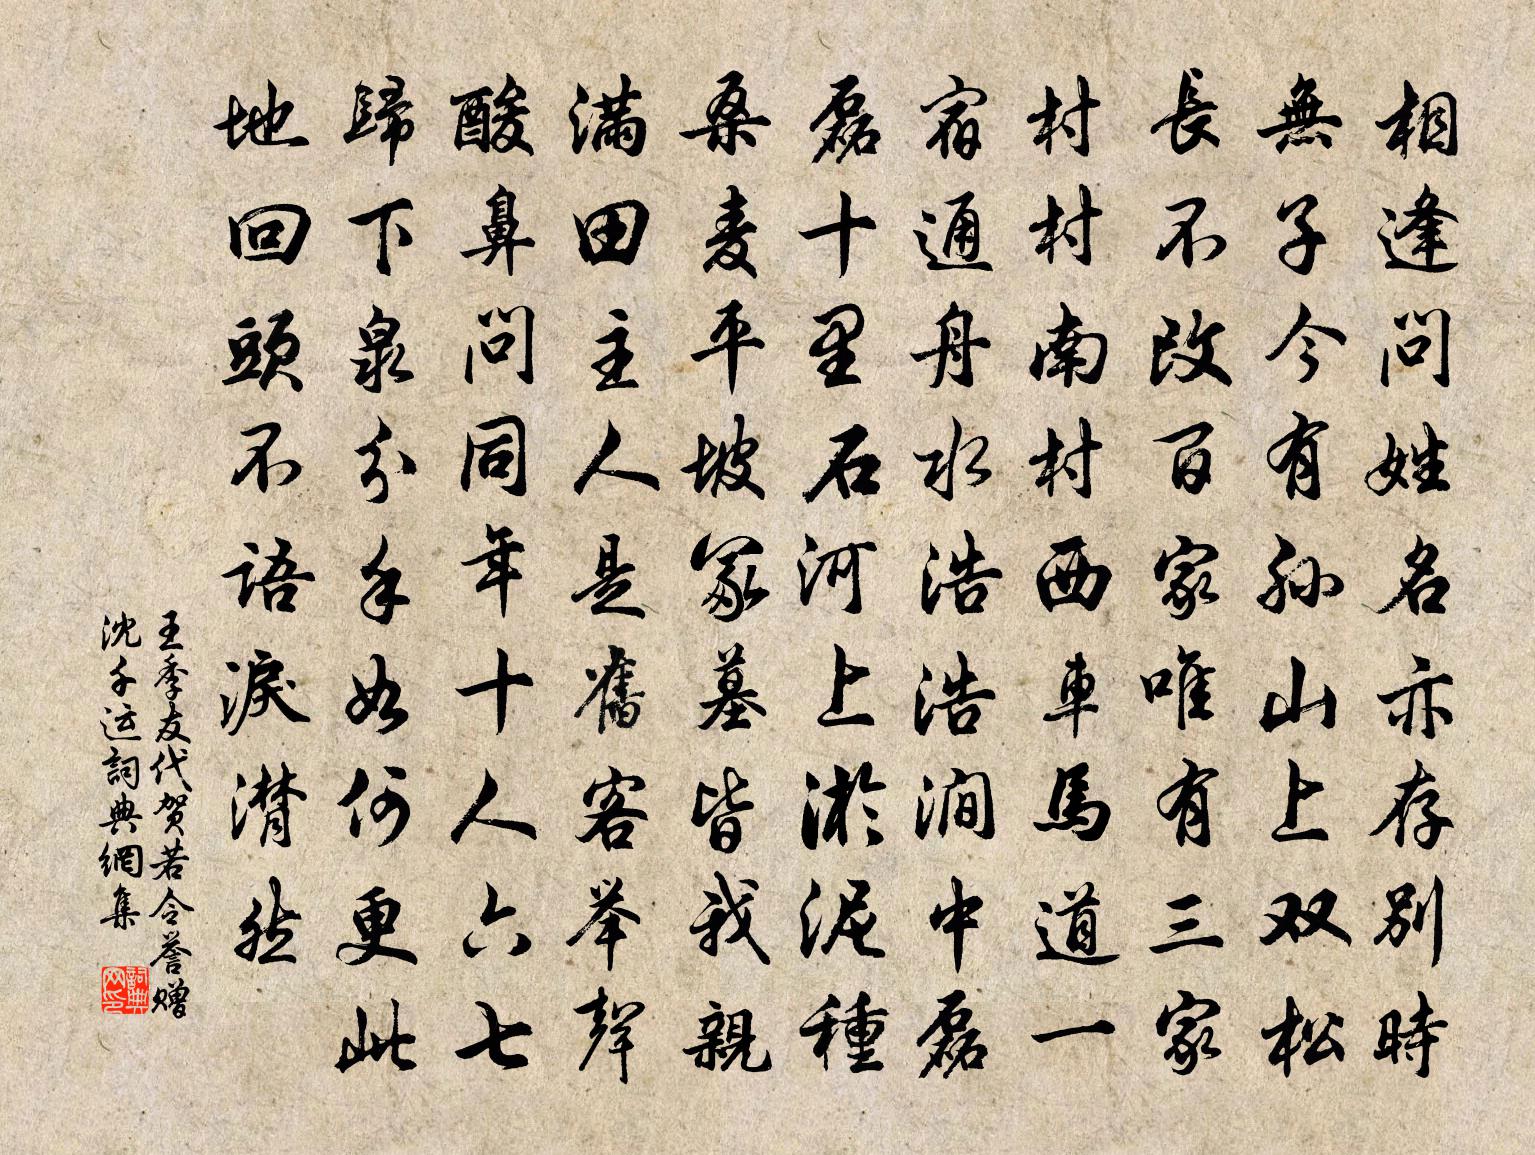 相逢問姓名亦存別時
無子今有孙山上双松
長不改百家唯有三家
村村南村西車馬道一
宿通舟水浩浩澗中磊
磊十里石河上淤泥種
桑麦平坡冢墓皆我親
滿田主人是舊客举聲
酸鼻問同年十人六七
歸下泉分手如何更此
地回頭不語淚潸然
王季友代贺若令誉赠
沈千运詞典網集